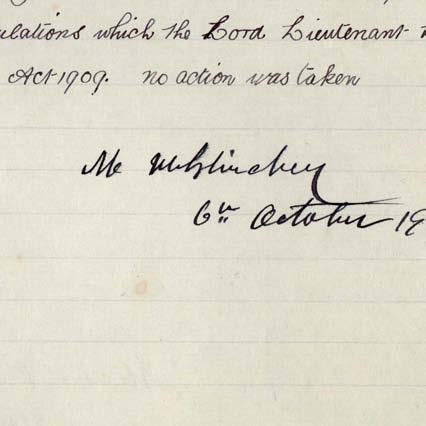 ulations which the Lord Lieutenant
Act 1909. no action was taken
M McGlinchey
6th October 19